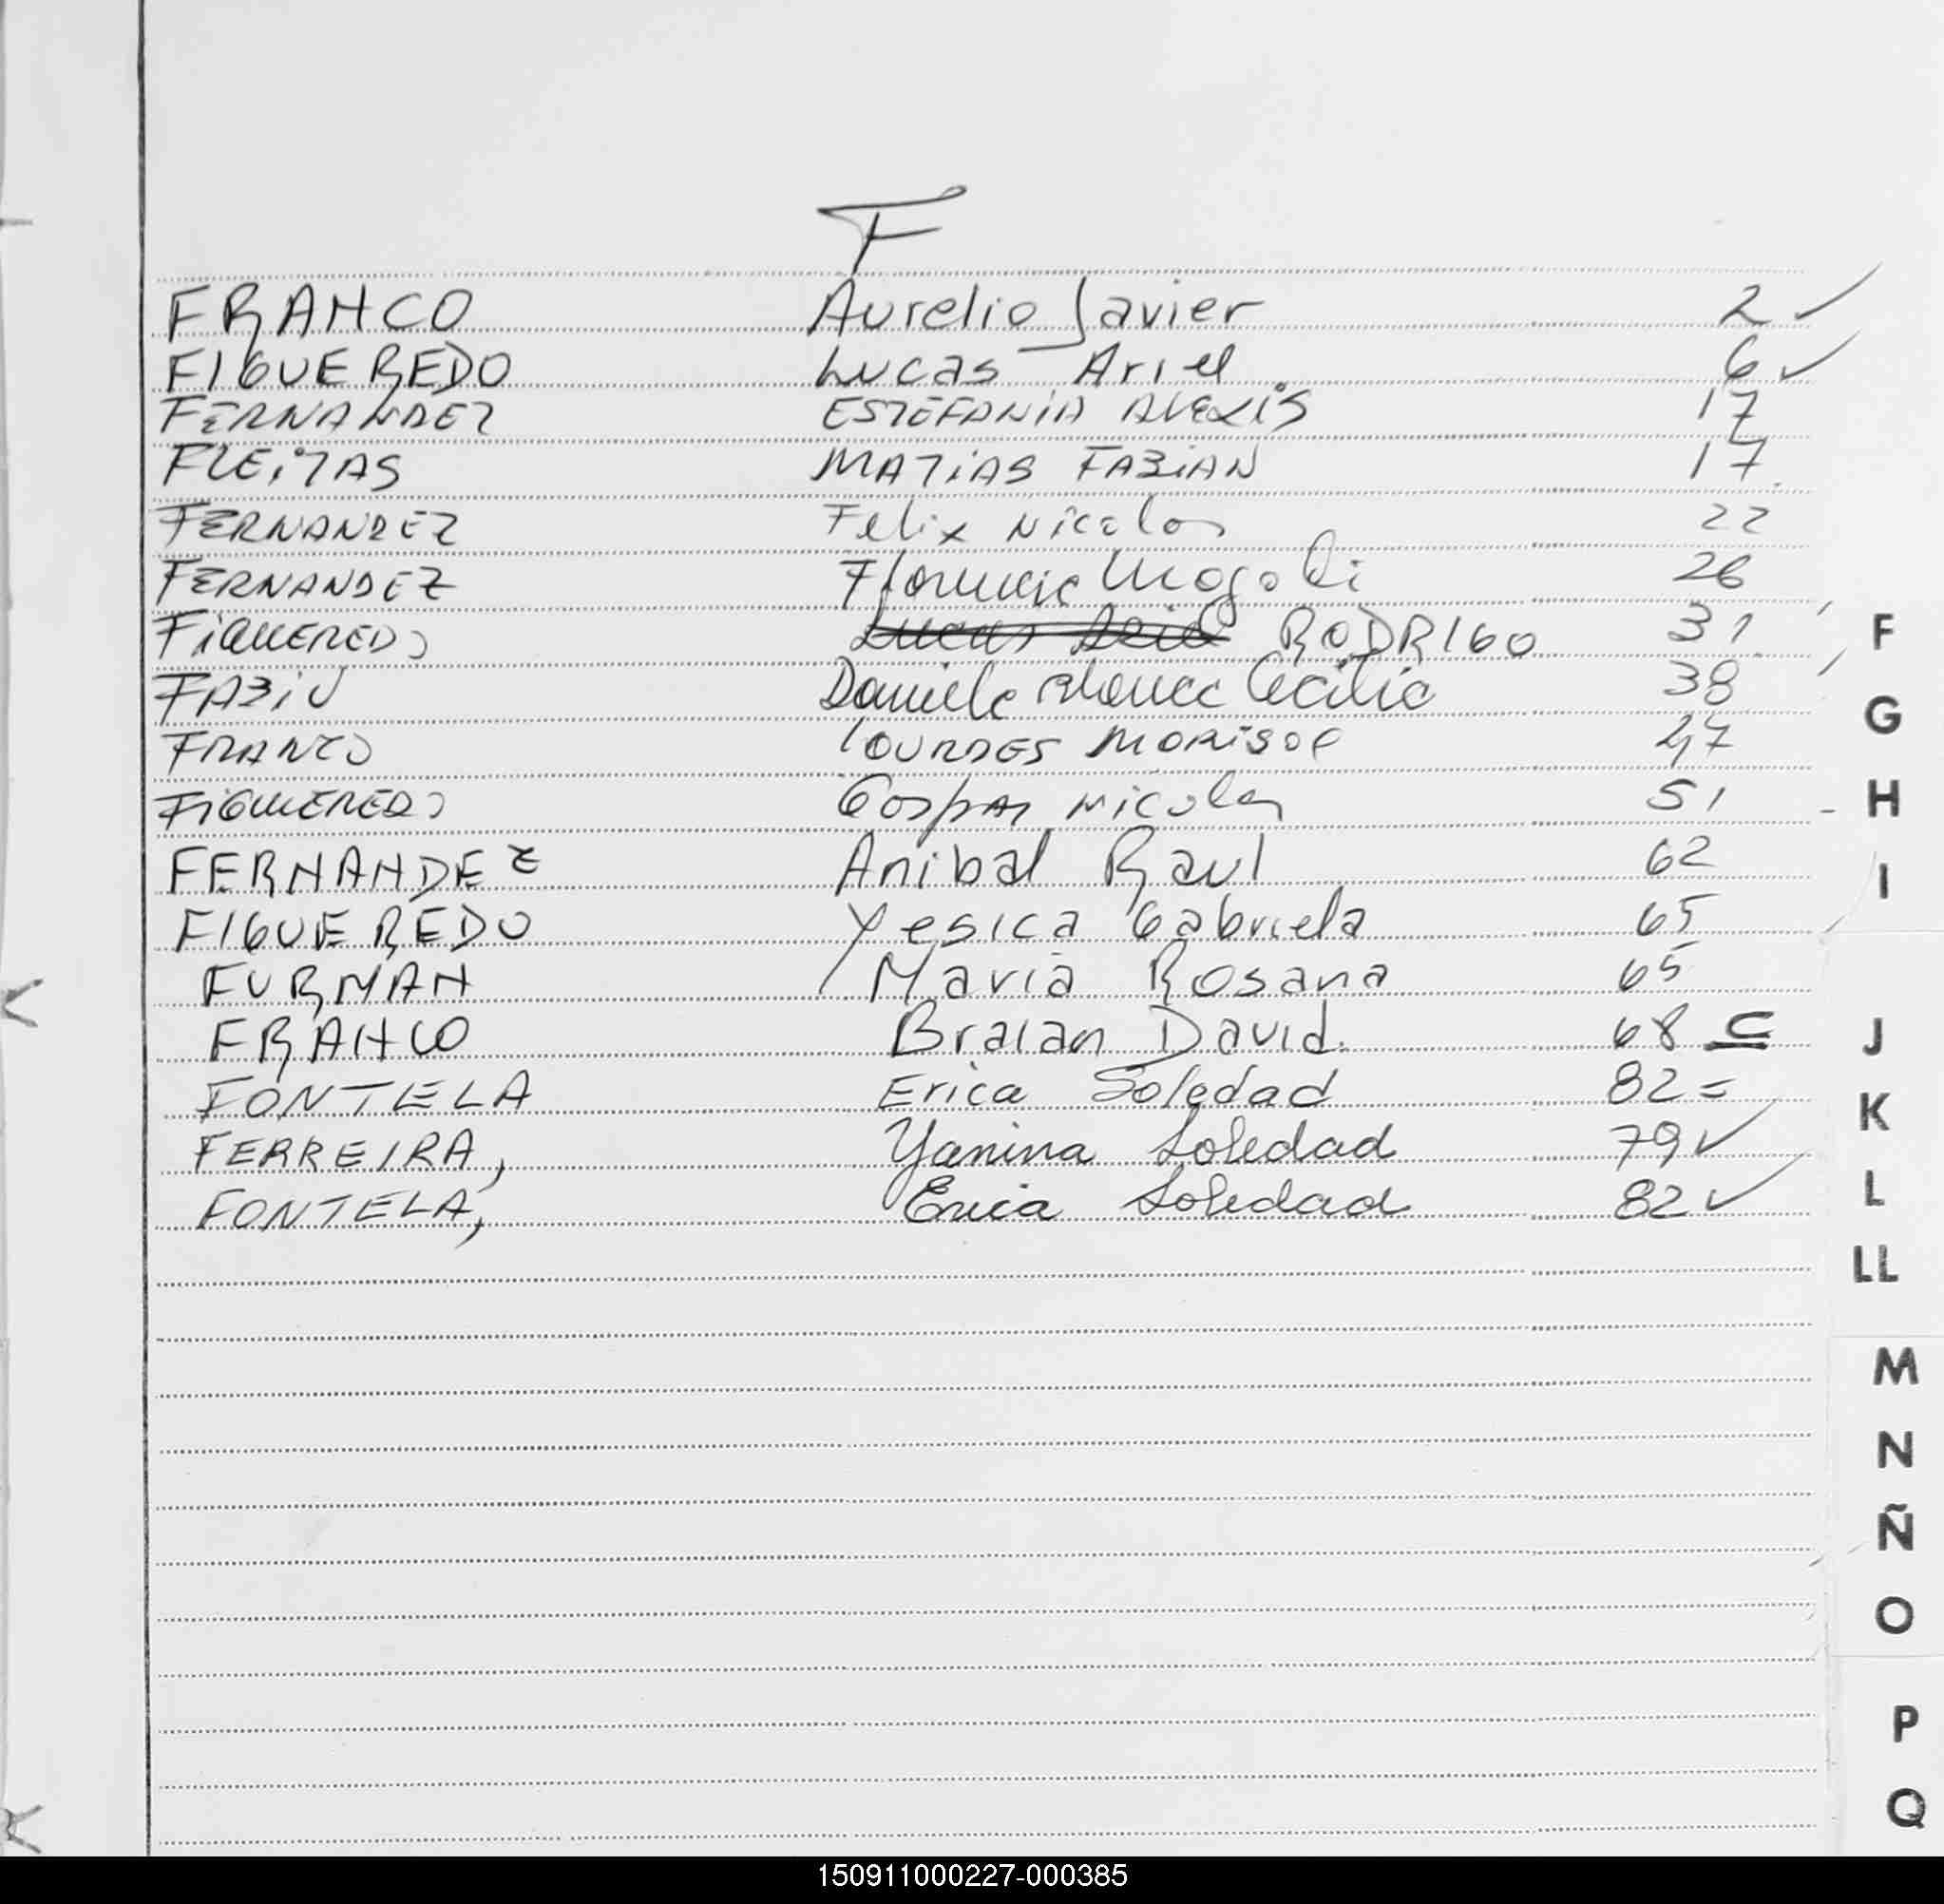 F
FRANCO Aurelio Javier 2 ✓
FIGUEREDO Lucas Ariel 6 ✓
FERNANDEZ ESTEFANIA ALEXIS 17
FLEITAS MATIAS FABIAN 17
FERNANDEZ Felix Nicolas 22
FERNANDEZ Florencia Magali 26
FIGUEREDO Lucas Ariel RODRIGO 31
FABIU Daniela Cecilia 38
FRANCO LOURDES MARISOL 47
FIGUEREDO Gaspar Nicolas 51
FERNANDEZ Anibal Raul 62
FIGUEREDO Yesica Gabriela 65
FURMAN Maria Rosana 65
FRANCO Braian David. 68 C
FONTELA Erica Soledad 82 =
FERREIRA, Yanina Soledad 79 ✓
FONTELA, Erica Soledad 82 ✓
F
G
H
I
J
K
L
LL
M
N
Ñ
O
P
Q
150911000227-000385